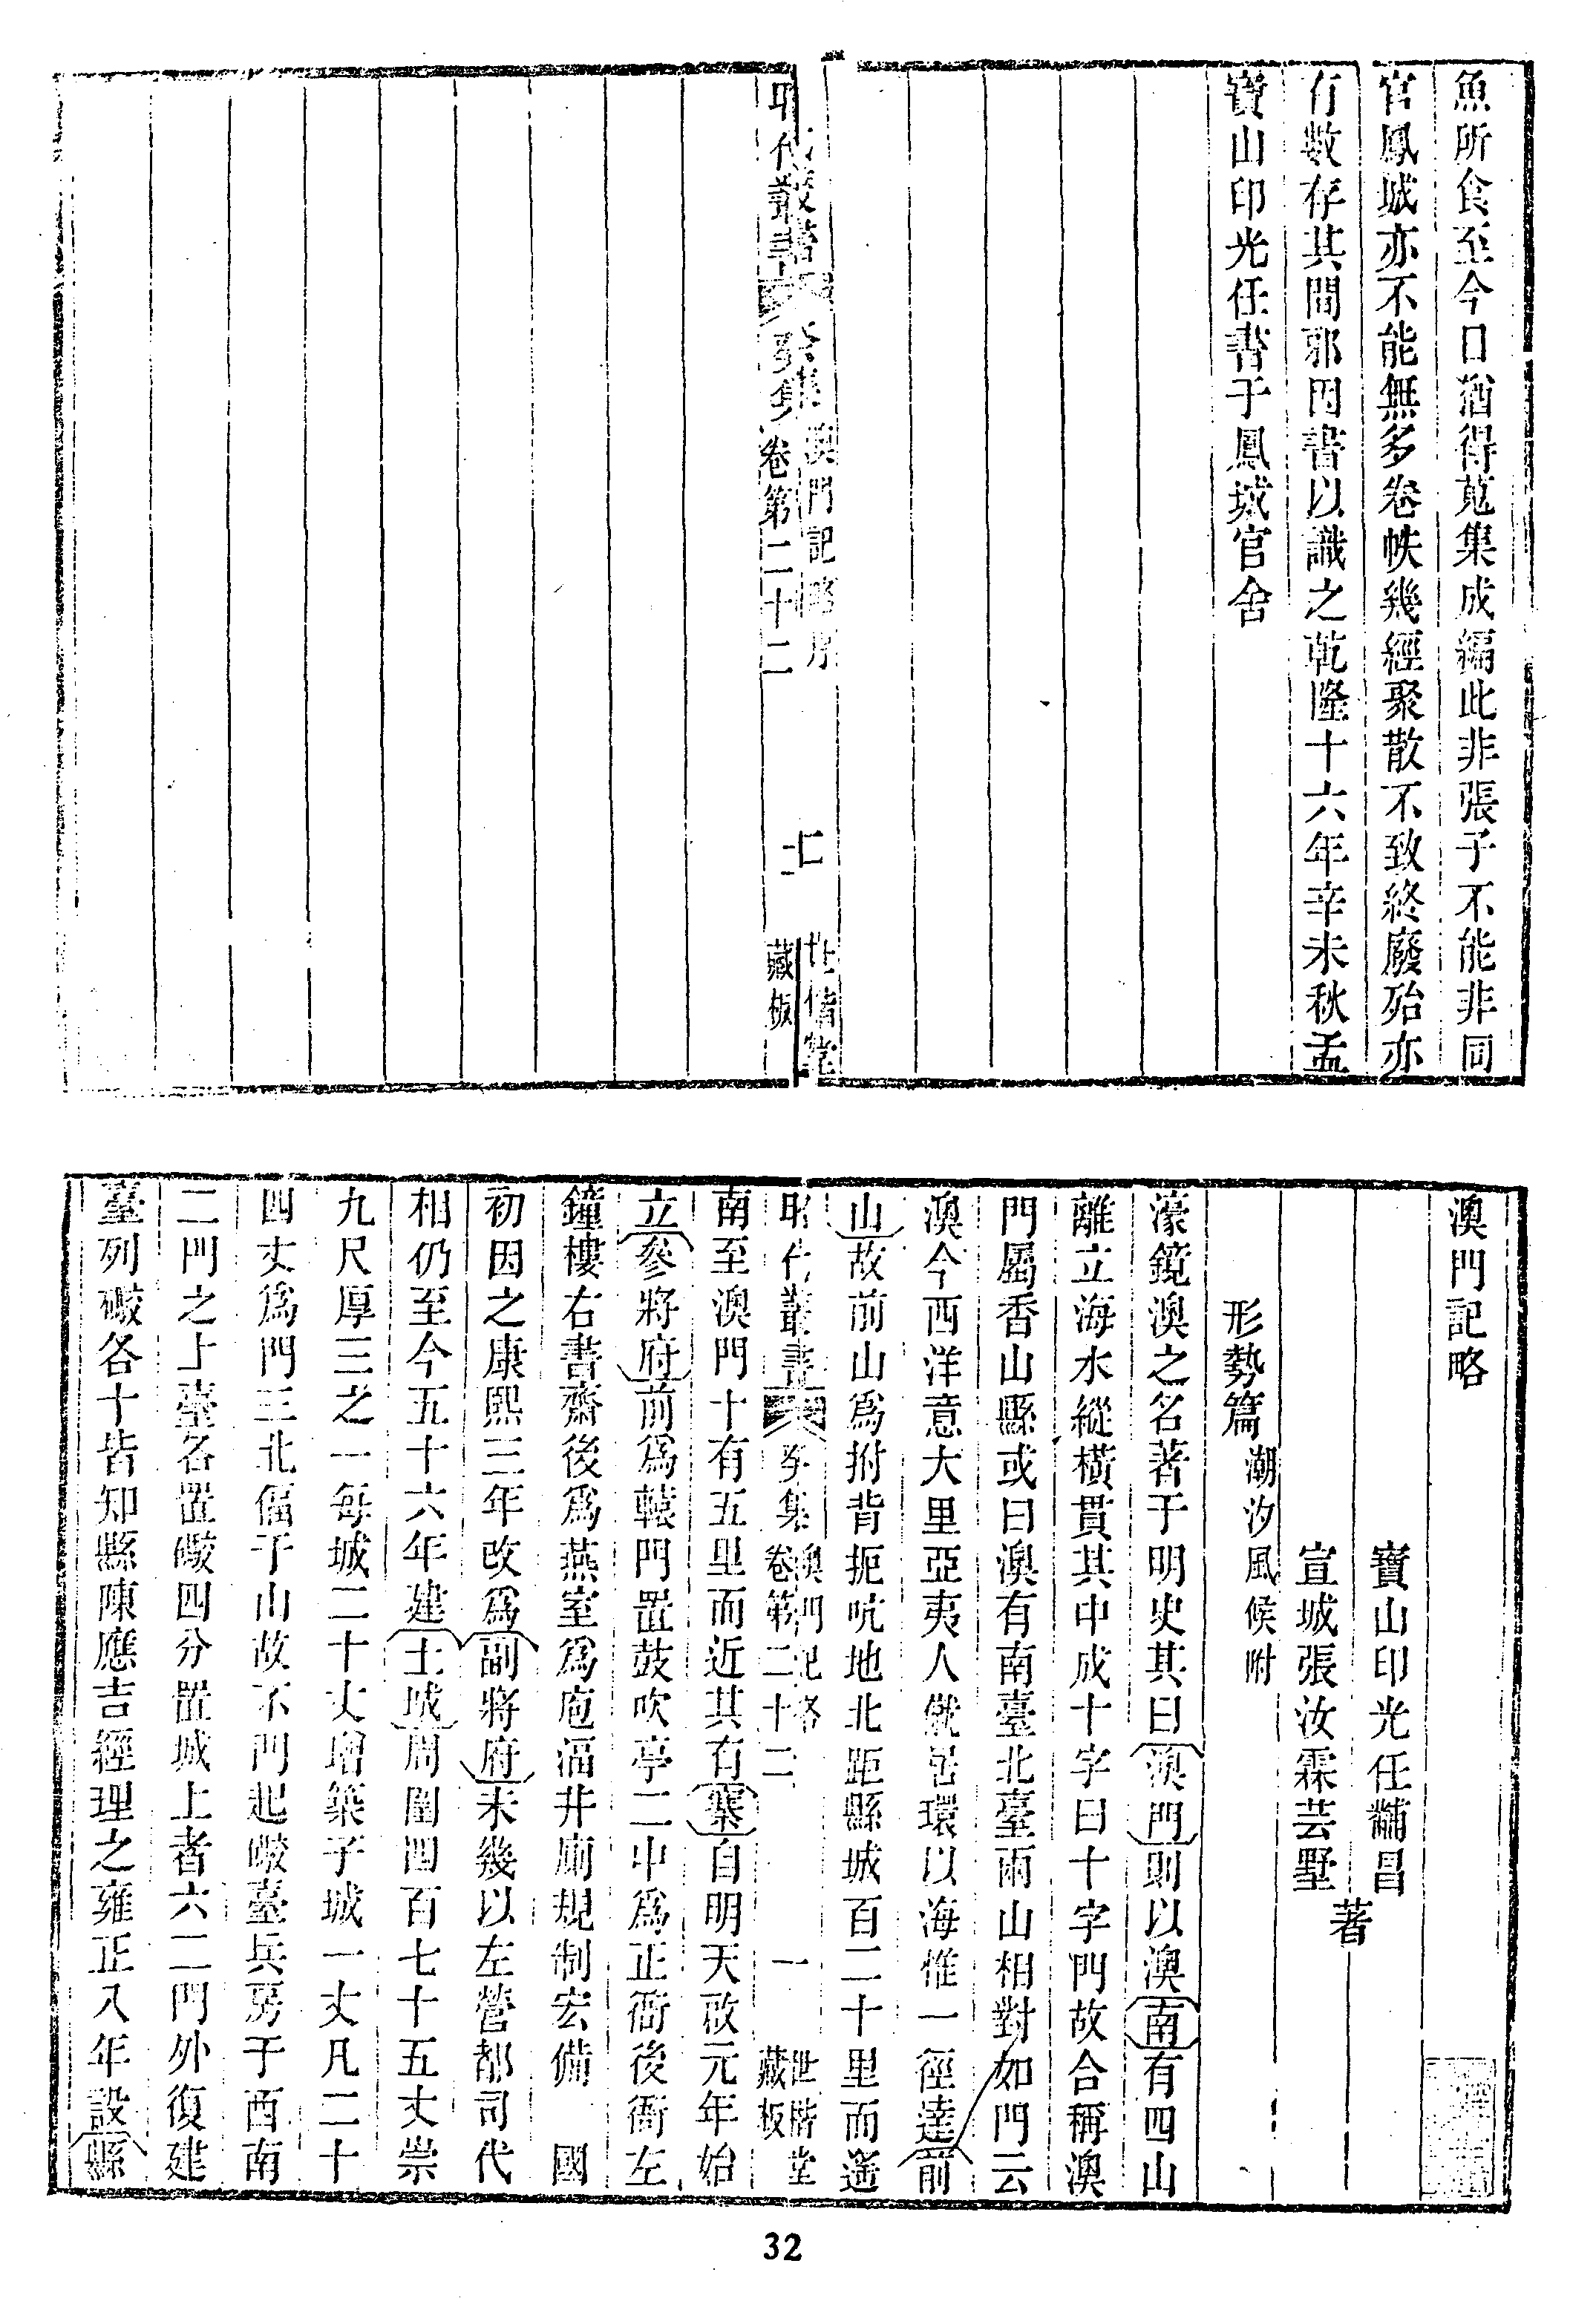 魚所食至今日猶得蒐集成編此非張子不能非同
官鳳城亦不能無多卷帙幾經聚散不致終廢殆亦
有數存其間邪因書以識之乾隆十六年辛未秋孟
寶山印光任書于鳳城官舍
昭代叢書 癸集 澳門記略序 卷第二十二 世楷堂 藏板
澳門記略
寶山印光任黼昌
宣城張汝霖芸墅
著
形勢篇 潮汐風候附
濠鏡澳之名著于明史其曰澳門則以澳南有四山
離立海水縱橫貫其中成十字曰十字門故合稱澳
門屬香山縣或曰澳有南臺北臺兩山相對如門云
澳今西洋意大里亞夷人僦居環以海惟一徑達前
山故前山爲拊背扼吭地北距縣城百二十里而遙
昭代叢書 癸集 澳門記略 卷第二十二 一 世楷堂 藏板
南至澳門十有五里而近其有寨自明天啟元年始
立參將府前爲轅門置鼓吹亭二中爲正衙後衙左
鐘樓右書齋後爲燕室爲庖湢井廁規制宏備 國
初因之康熙三年改爲副將府未幾以左營都司代
相仍至今五十六年建土城周圍四百七十五丈崇
九尺厚三之一每城二十丈增築子城一丈凡二十
四丈爲門三北偪于山故不門起礮臺兵房于西南
二門之上臺各置礮四分置城上者六二門外復建
臺列礮各十皆知縣陳應吉經理之雍正八年設縣
32